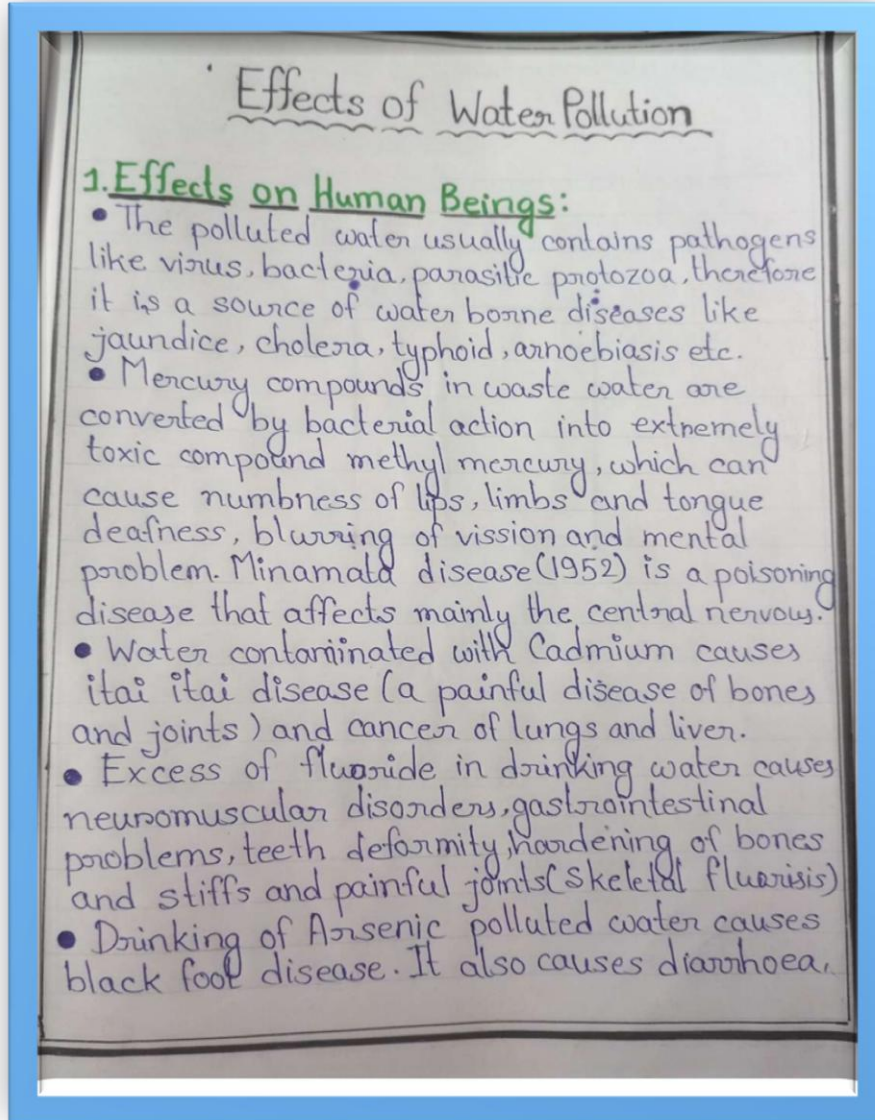 Effects of Water Pollution
1. Effects on Human Beings:
• The polluted water usually contains pathogens
like virus, bacteria, parasitic protozoa, therefore
it is a source of water borne diseases like
jaundice, cholera, typhoid, amoebiasis etc.
• Mercury compounds in waste water are
converted by bacterial action into extremely
toxic compound methyl mercury, which can
cause numbness of lips, limbs and tongue
deafness, blurring of vission and mental
problem. Minamata disease (1952) is a poisoning
disease that affects mainly the central nervous.
• Water contaminated with Cadmium causes
itai itai disease (a painful disease of bones
and joints) and cancer of lungs and liver.
• Excess of fluoride in drinking water causes
neuromuscular disorders, gastrointestinal
problems, teeth deformity, hardening of bones
and stiffs and painful joints (skeletal fluorisis)
• Drinking of Arsenic polluted water causes
black foot disease. It also causes diarrhoea,